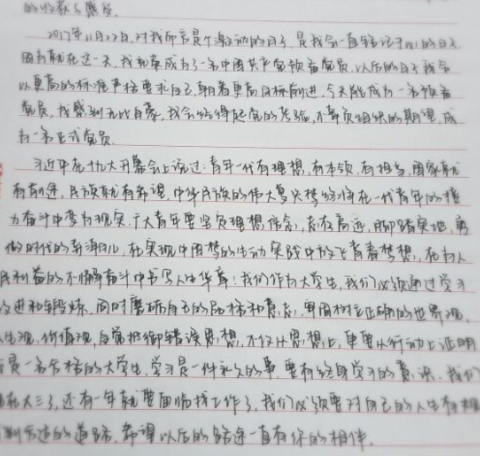 的收获与感受.
2017年11月22日,对我而言是个激动的日子,是我会一直铭记于心的日子
因为就在这一天,我如愿成为了一名中国共产党预备党员,以后的日子我会
以更高的标准严格要求自己,朝着更高目标前进,今天能成为一名预备
党员,我感到无比自豪,我会经得起党的考验,不辜负组织的期望,成
为一名正式党员.
习近平在十九大开幕会上说过:青年一代有理想,有本领,有担当,国家就
有前途,民族就有希望,中华民族的伟大复兴梦终将在一代青年的接
力奋斗中变为现实,广大青年要坚定理想信念,志存高远,脚踏实地,勇
做时代的弄潮儿,在实现中国梦的生动实践中放飞青春梦想,在为人
民利益的不懈奋斗中书写人生华章!我们作为大学生,我们必须通过学习
改进和锻炼,同时磨砺自己的品格和意志,牢固树立正确的世界观,
人生观,价值观,自觉抵御错误思想,不仅从思想上,更要从行动上证明
是一名合格的大学生,学习是一件永久的事,要有终身学习的意识,我们
在大三了,还有一年就要面临找工作了,我们必须要对自己的人生有规
划 的道路,希望以后的路途一直有你的相伴.